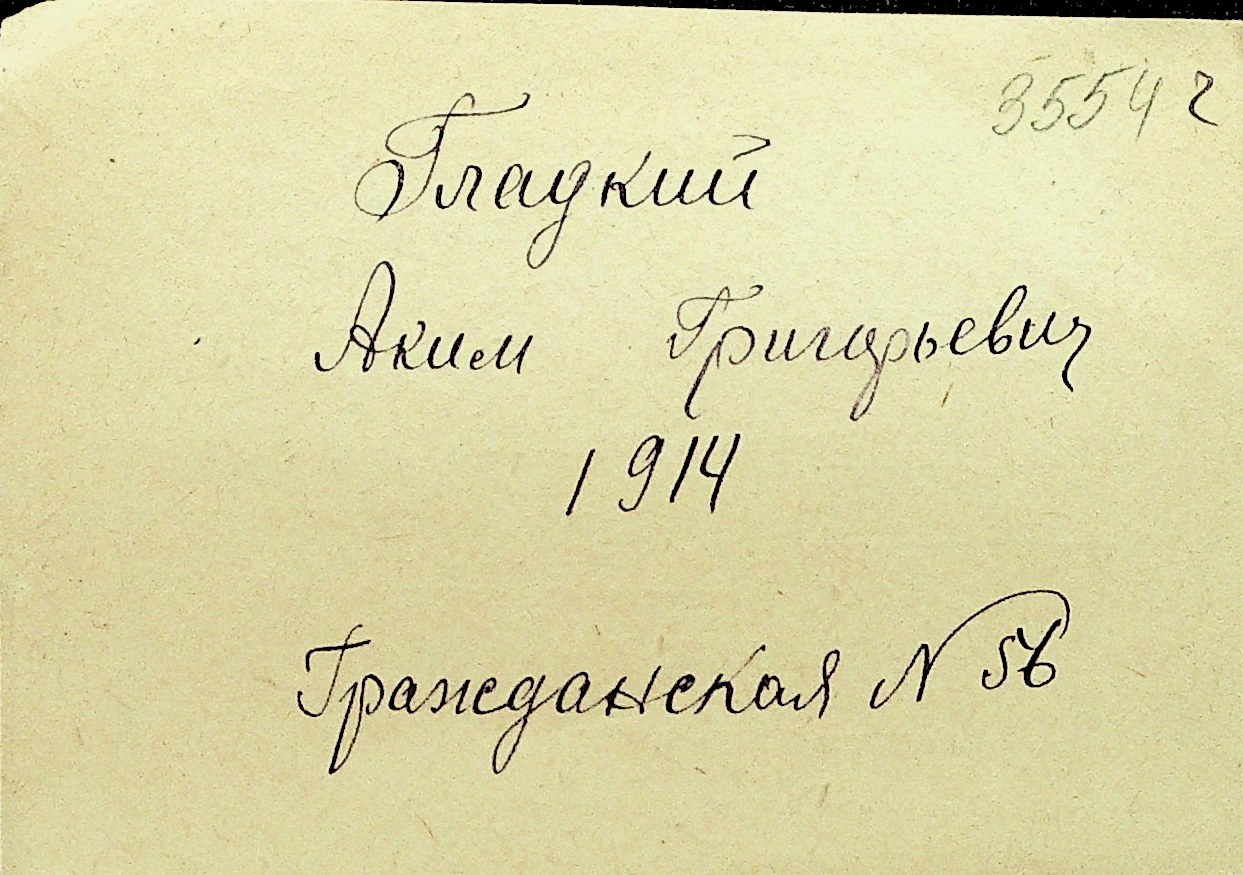 3554 г
Гладкий
Аким Григорьевич
1914
Гражданская N 56